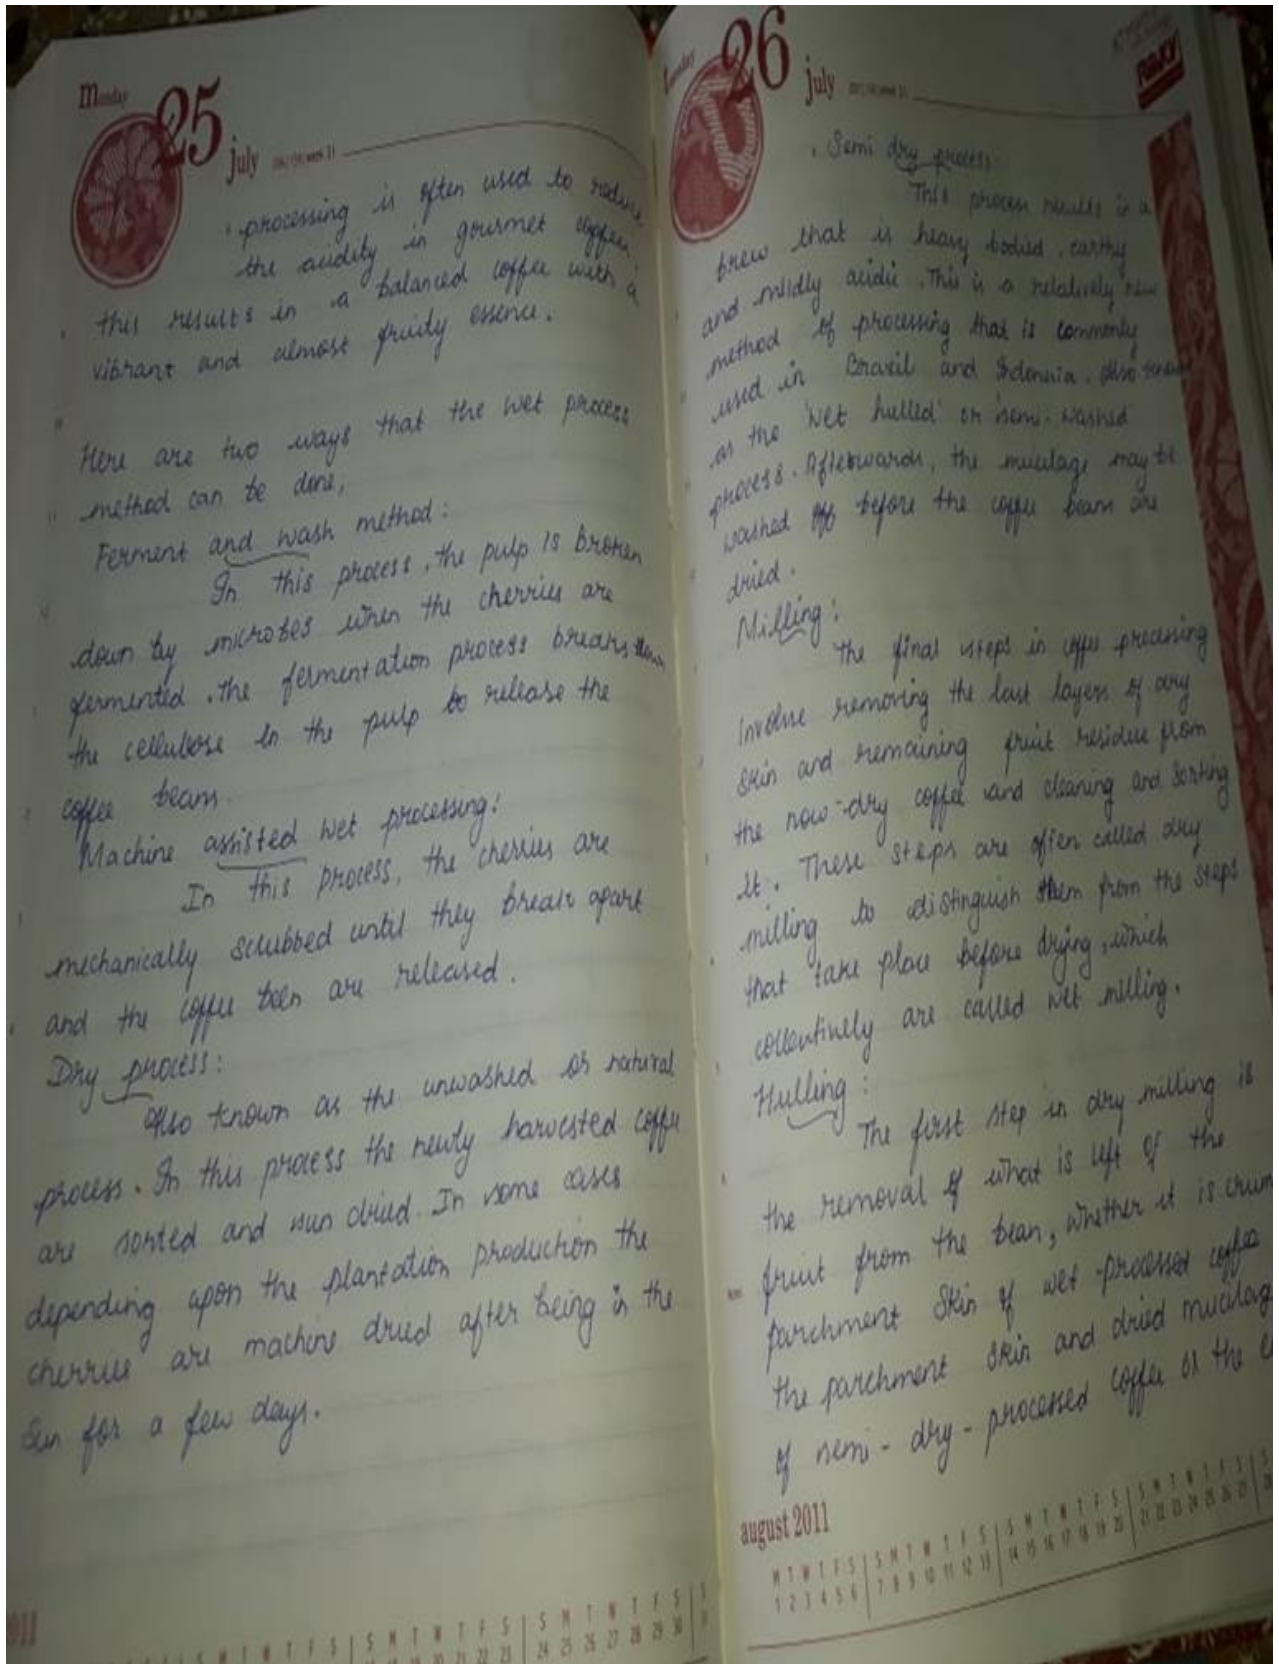 Monday
25
july
processing is often used to reduce
the acidity in gourmet coffees
this results in a balanced coffee with a
vibrant and almost fruity essence.
Here are two ways that the wet process
method can be done,
Ferment and wash method:
In this process, the pulp is broken
down by microbes when the cherries are
fermented. the fermentation process breaks down
the cellulose in the pulp to release the
coffee beans.
Machine assisted wet processing:
In this process, the cherries are
mechanically scrubbed until they break apart
and the coffee been are released.
Dry process:
Also known as the unwashed or natural
process. In this process the newly harvested coffee
are sorted and sun dried. In some cases
depending upon the plantation production the
cherries are machine dried after being in the
Sun for a few days.
S M T W T F S
24 25 26 27 28 29 30
26
july
Semi dry process:
This process results in a
brew that is heavy bodied, earthy
and mildly acidic. This is a relatively new
method of processing that is commonly
used in Brazil and Indonesia. Also known
as the 'wet hulled' or semi-washed
process. Afterwards, the mucilage may be
washed off before the coffee beans are
dried.
Milling:
The final steps in coffee processing
involve removing the last layers of dry
skin and remaining fruit residue from
the now-dry coffee and cleaning and sorting
it. These steps are often called dry
milling to distinguish them from the steps
that take place before drying, which
collectively are called wet milling.
Hulling:
The first step in dry milling is
the removal of what is left of the
fruit from the bean, whether it is crum
parchment skin of wet-processed coffee
the parchment skin and dried mucilag
of semi-dry-processed coffee or the
august 2011
M T W T F S S M T W T F S S M T W T F S S M T W T F S
1 2 3 4 5 6 7 8 9 10 11 12 13 14 15 16 17 18 19 20 21 22 23 24 25 26 27 28